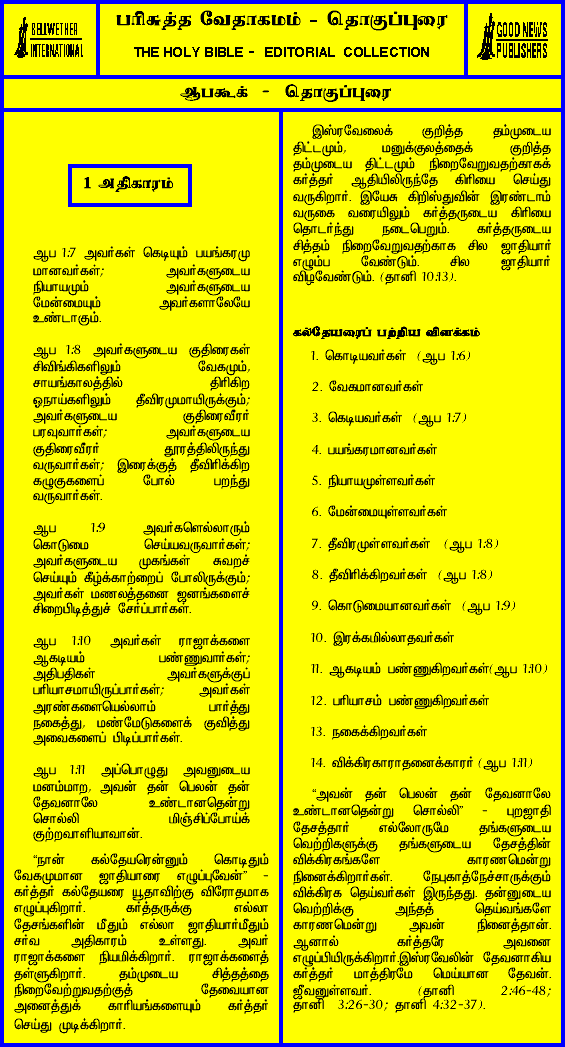 BELLWETHER
INTERNATIONAL
பரிசுத்த வேதாகமம் - தொகுப்புரை
THE HOLY BIBLE - EDITORIAL COLLECTION
GOOD NEWS
PUBLISHERS
ஆபகூக் - தொகுப்புரை
1 அதிகாரம்
ஆப 1:7 அவர்கள் கெடியும் பயங்கரமு
மானவர்கள்; அவர்களுடைய
நியாயமும் அவர்களுடைய
மேன்மையும் அவர்களாலேயே
உண்டாகும்.
ஆப 1:8 அவர்களுடைய குதிரைகள்
சிவிங்கிகளிலும் வேகமும்,
சாயங்காலத்தில் திரிகிற
ஓநாய்களிலும் தீவிரமுமாயிருக்கும்;
அவர்களுடைய குதிரைவீரர்
பரவுவார்கள்; அவர்களுடைய
குதிரைவீரர் தூரத்திலிருந்து
வருவார்கள்; இரைக்குத் தீவிரிக்கிற
கழுகுகளைப் போல் பறந்து
வருவார்கள்.
ஆப 1:9 அவர்களெல்லாரும்
கொடுமை செய்யவருவார்கள்;
அவர்களுடைய முகங்கள் சுவறச்
செய்யும் கீழ்க்காற்றைப் போலிருக்கும்;
அவர்கள் மணலத்தனை ஜனங்களைச்
சிறைபிடித்துச் சேர்ப்பார்கள்.
ஆப 1:10 அவர்கள் ராஜாக்களை
ஆகடியம் பண்ணுவார்கள்;
அதிபதிகள் அவர்களுக்குப்
பரியாசமாயிருப்பார்கள்; அவர்கள்
அரண்களையெல்லாம் பார்த்து
நகைத்து, மண்மேடுகளைக் குவித்து
அவைகளைப் பிடிப்பார்கள்.
ஆப 1:11 அப்பொழுது அவனுடைய
மனம்மாற, அவன் தன் பெலன் தன்
தேவனாலே உண்டானதென்று
சொல்லி மிஞ்சிப்போய்க்
குற்றவாளியாவான்.
“நான் கல்தேயரென்னும் கொடிதும்
வேகமுமான ஜாதியாரை எழுப்புவேன்” -
கர்த்தர் கல்தேயரை யூதாவிற்கு விரோதமாக
எழுப்புகிறார். கர்த்தருக்கு எல்லா
தேசங்களின் மீதும் எல்லா ஜாதியார்மீதும்
சர்வ அதிகாரம் உள்ளது. அவர்
ராஜாக்களை நியமிக்கிறார். ராஜாக்களைத்
தள்ளுகிறார். தம்முடைய சித்தத்தை
நிறைவேற்றுவதற்குத் தேவையான
அனைத்துக் காரியங்களையும் கர்த்தர்
செய்து முடிக்கிறார்.
இஸ்ரவேலைக் குறித்த தம்முடைய
திட்டமும், மனுக்குலத்தைக் குறித்த
தம்முடைய திட்டமும் நிறைவேறுவதற்காகக்
கர்த்தர் ஆதியிலிருந்தே கிரியை செய்து
வருகிறார். இயேசு கிறிஸ்துவின் இரண்டாம்
வருகை வரையிலும் கர்த்தருடைய கிரியை
தொடர்ந்து நடைபெறும். கர்த்தருடைய
சித்தம் நிறைவேறுவதற்காக சில ஜாதியார்
எழும்ப வேண்டும். சில ஜாதியார்
விழவேண்டும். (தானி 10:13).
கல்தேயரைப் பற்றிய விளக்கம்
1. கொடியவர்கள் (ஆப 1:6)
2. வேகமானவர்கள்
3. கெடியவர்கள் (ஆப 1:7)
4. பயங்கரமானவர்கள்
5. நியாயமுள்ளவர்கள்
6. மேன்மையுள்ளவர்கள்
7. தீவிரமுள்ளவர்கள் (ஆப 1:8)
8. தீவிரிக்கிறவர்கள் (ஆப 1:8)
9. கொடுமையானவர்கள் (ஆப 1:9)
10. இரக்கமில்லாதவர்கள்
11. ஆகடியம் பண்ணுகிறவர்கள்(ஆப 1:10)
12. பரியாசம் பண்ணுகிறவர்கள்
13. நகைக்கிறவர்கள்
14. விக்கிரகாராதனைக்காரர் (ஆப 1:11)
“அவன் தன் பெலன் தன் தேவனாலே
உண்டானதென்று சொல்லி” - புறஜாதி
தேசத்தார் எல்லோருமே தங்களுடைய
வெற்றிகளுக்கு தங்களுடைய தேசத்தின்
விக்கிரகங்களே காரணமென்று
நினைக்கிறார்கள். நேபுகாத்நேச்சாருக்கும்
விக்கிரக தெய்வர்கள் இருந்தது. தன்னுடைய
வெற்றிக்கு அந்தத் தெய்வங்களே
காரணமென்று அவன் நினைத்தான்.
ஆனால் கர்த்தரே அவனை
எழுப்பியிருக்கிறார்.இஸ்ரவேலின் தேவனாகிய
கர்த்தர் மாத்திரமே மெய்யான தேவன்.
ஜீவனுள்ளவர். (தானி 2:46-48;
தானி 3:26-30; தானி 4:32-37).